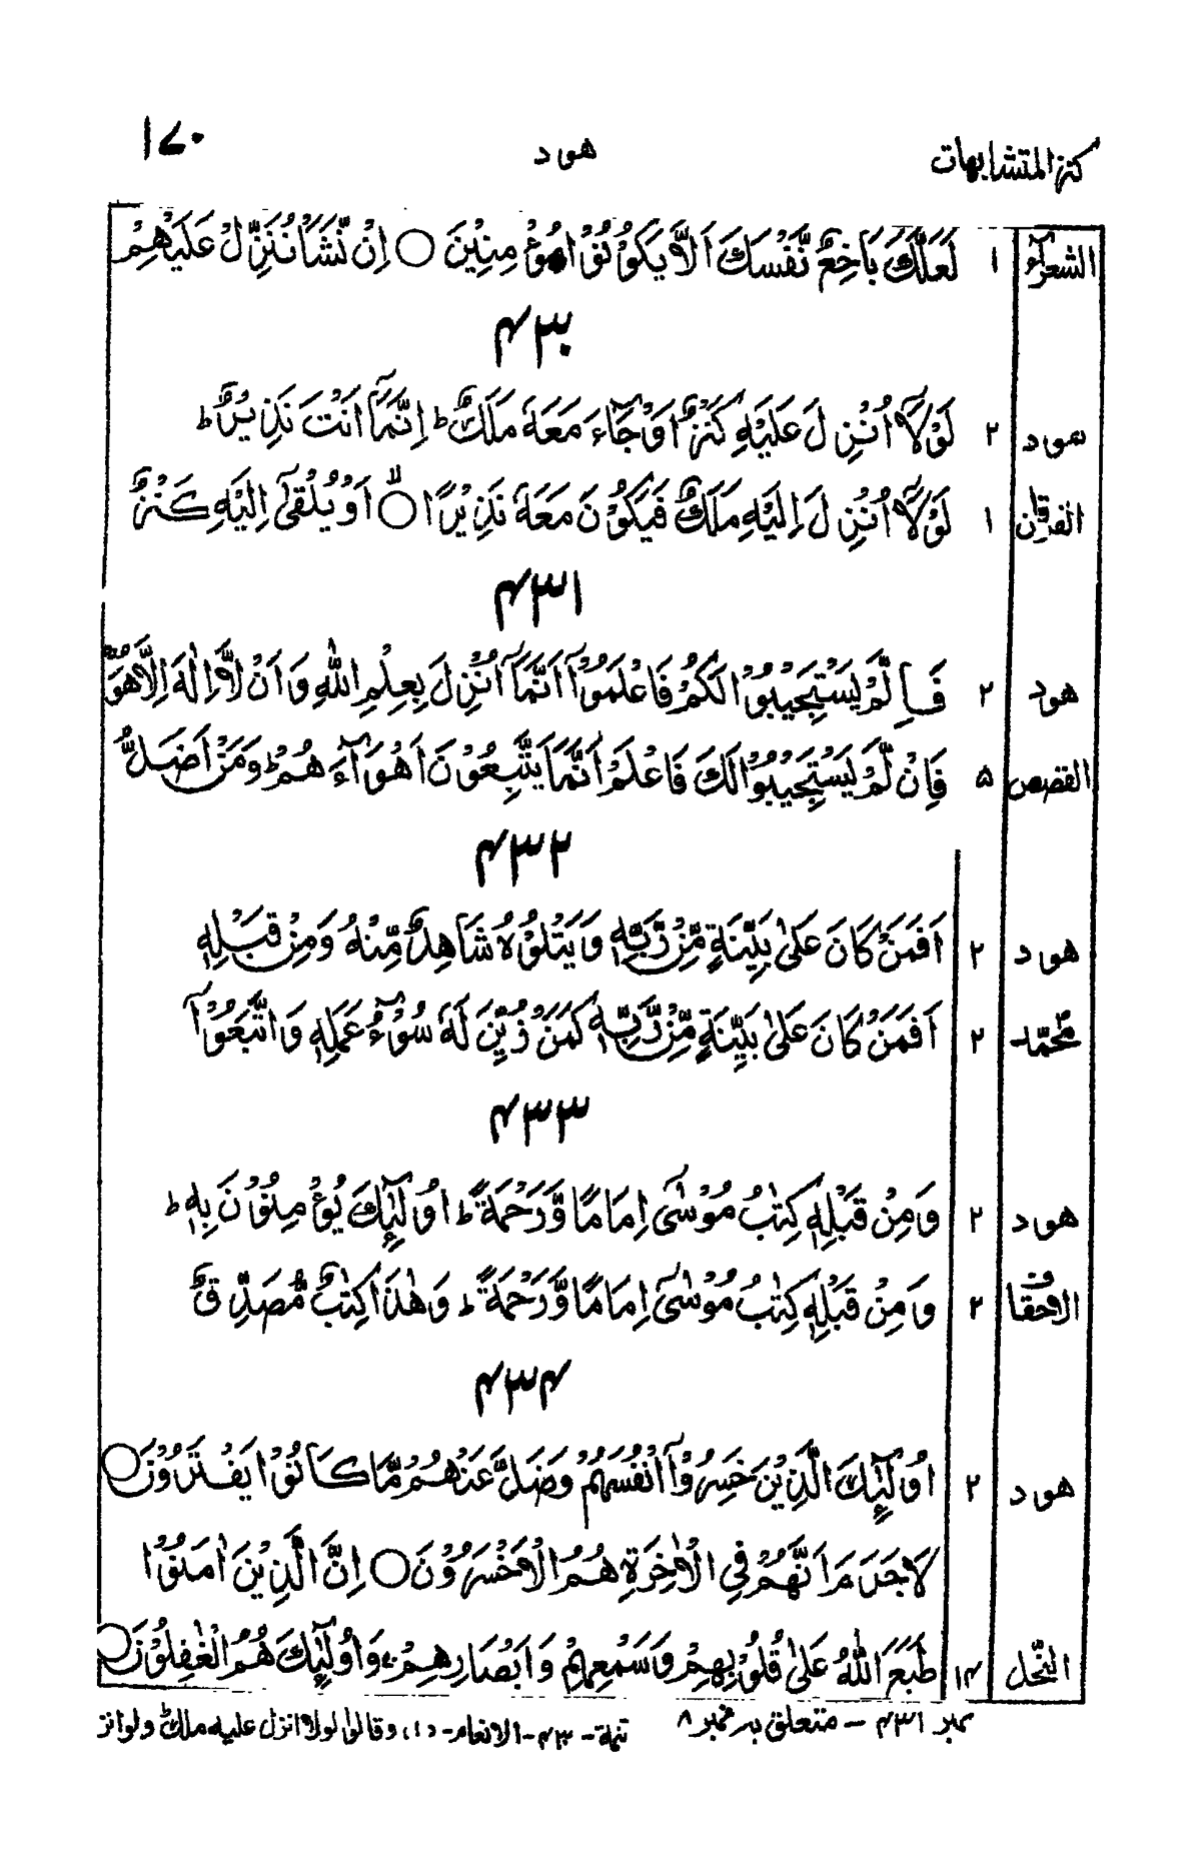 كنز المتشابهات هود ١٧٠
الشعرآء ١ لَعَلَّكَ بَاخِعٌ نَّفْسَكَ اَلَّا يَكُوْنُوْا مُؤْمِنِيْنَ ○ اِنْ نَّشَاْ نُنَزِّلْ عَلَيْهِمْ
۴۳۰
هود ۲ لَوْلَآ اُنْزِلَ عَلَيْهِ كَنْزٌ اَوْ جَآءَ مَعَهٗ مَلَكٌ ؕ اِنَّمَآ اَنْتَ نَذِيْرٌ ؕ
الفرقان ١ لَوْلَآ اُنْزِلَ اِلَيْهِ مَلَكٌ فَيَكُوْنَ مَعَهٗ نَذِيْرًا ○ۙ اَوْ يُلْقٰٓى اِلَيْهِ كَنْزٌ
۴۳۱
هود ۲ فَاِلَّمْ يَسْتَجِيْبُوْا لَكُمْ فَاعْلَمُوْٓا اَنَّمَآ اُنْزِلَ بِعِلْمِ اللّٰهِ وَاَنْ لَّآ اِلٰهَ اِلَّا هُوَ ۚ
القصص ۵ فَاِنْ لَّمْ يَسْتَجِيْبُوْا لَكَ فَاعْلَمْ اَنَّمَا يَتَّبِعُوْنَ اَهْوَآءَهُمْ ؕ وَمَنْ اَضَلُّ
۴۳۲
هود ۲ اَفَمَنْ كَانَ عَلٰى بَيِّنَةٍ مِّنْ رَّبِّهٖ وَيَتْلُوْهُ شَاهِدٌ مِّنْهُ وَمِنْ قَبْلِهٖ
محمّد ۲ اَفَمَنْ كَانَ عَلٰى بَيِّنَةٍ مِّنْ رَّبِّهٖ كَمَنْ زُيِّنَ لَهٗ سُوْٓءُ عَمَلِهٖ وَاتَّبَعُوْٓا
۴۳۳
هود ۲ وَمِنْ قَبْلِهٖ كِتٰبُ مُوْسٰٓى اِمَامًا وَّرَحْمَةً ؕ اُولٰٓئِكَ يُؤْمِنُوْنَ بِهٖ ؕ
الاحقاف ۲ وَمِنْ قَبْلِهٖ كِتٰبُ مُوْسٰٓى اِمَامًا وَّرَحْمَةً ؕ وَهٰذَا كِتٰبٌ مُّصَدِّقٌ
۴۳۴
هود ۲ اُولٰٓئِكَ الَّذِيْنَ خَسِرُوْٓا اَنْفُسَهُمْ وَضَلَّ عَنْهُمْ مَّا كَانُوْا يَفْتَرُوْنَ ○
لَا جَرَمَ اَنَّهُمْ فِى الْاٰخِرَةِ هُمُ الْاَخْسَرُوْنَ ○ اِنَّ الَّذِيْنَ اٰمَنُوْا
النحل ۱۴ طَبَعَ اللّٰهُ عَلٰى قُلُوْبِهِمْ وَسَمْعِهِمْ وَاَبْصَارِهِمْ ۚ وَاُولٰٓئِكَ هُمُ الْغٰفِلُوْنَ ○
نمبر ۴۳۱ – متعلق بہ نمبر ۸ تتمة – ۴۳۰ – الانعام – (۱) وقالوا لولا انزل عليه ملك ولو انز